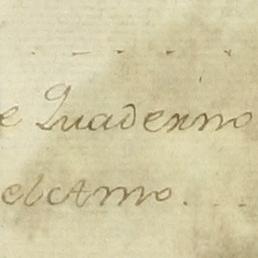 e Quaderno
el Amo.